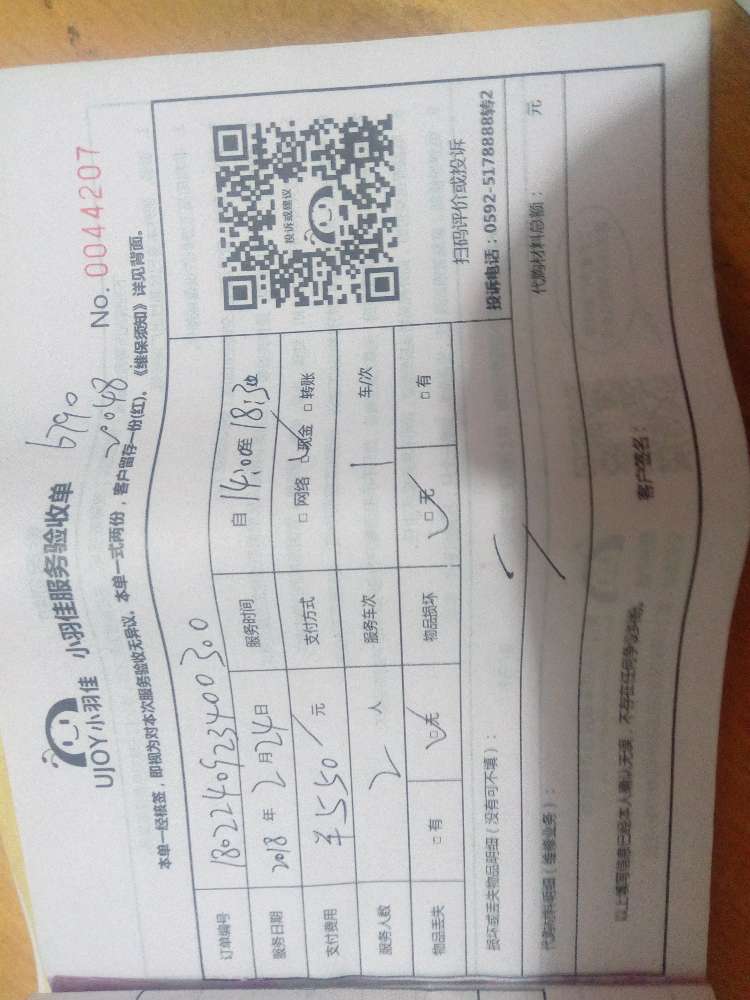 UJOY小羽佳 小羽佳服务验收单 6790
2048 No. 0044207
本单一经核签，即视为对本次服务验收无异议。本单一式两份，客户留存一份(红)。《维保须知》详见背面。
订单编号 180224092340030 0
服务日期 2018 年 2 月 24 日 服务时间 自 14:00 至 18:30
支付费用 ¥550 元 支付方式 □ 网络 □ 现金 □ 转账
服务人数 2 人 服务车次 1 车/次
物品丢失 □ 有 □ 无 物品损坏 □ 无 □ 有
投诉或建议
扫码评价或投诉
投诉电话：0592-5178888转2
损坏或丢失物品明细（没有可不填）：
代购材料明细（维修业务）： 代购材料总额： 元
以上填写信息已经本人确认无误，不存在任何争议纠纷。
客户签名：